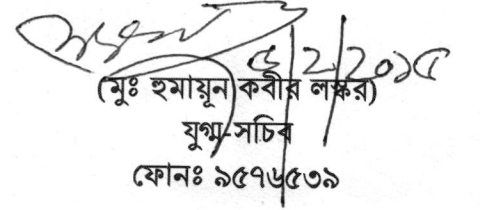 ৫/2/2০১৫
(মুঃ হুমায়ূন কবীর লস্কর)
যুগ্ম-সচিব
ফোনঃ ৯৫৭৬৫৩৯